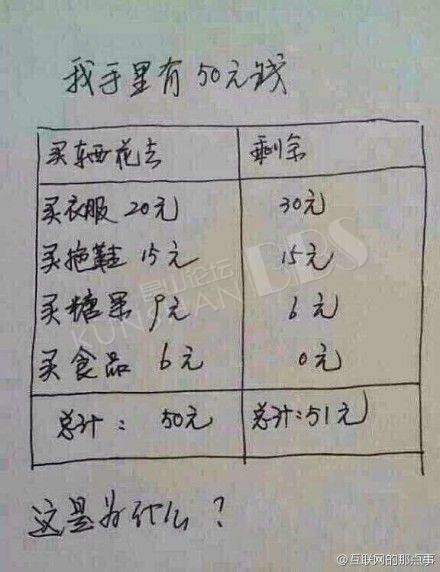 我手里有50元钱
买东西花去 剩余
买衣服 20元 30元
买拖鞋 15元 15元
买糖果 9元 6元
买食品 6元 0元
总计: 50元 总计:51元
这是为什么?
昆山论坛
KUNSHAN BBS
@互联网的那点事